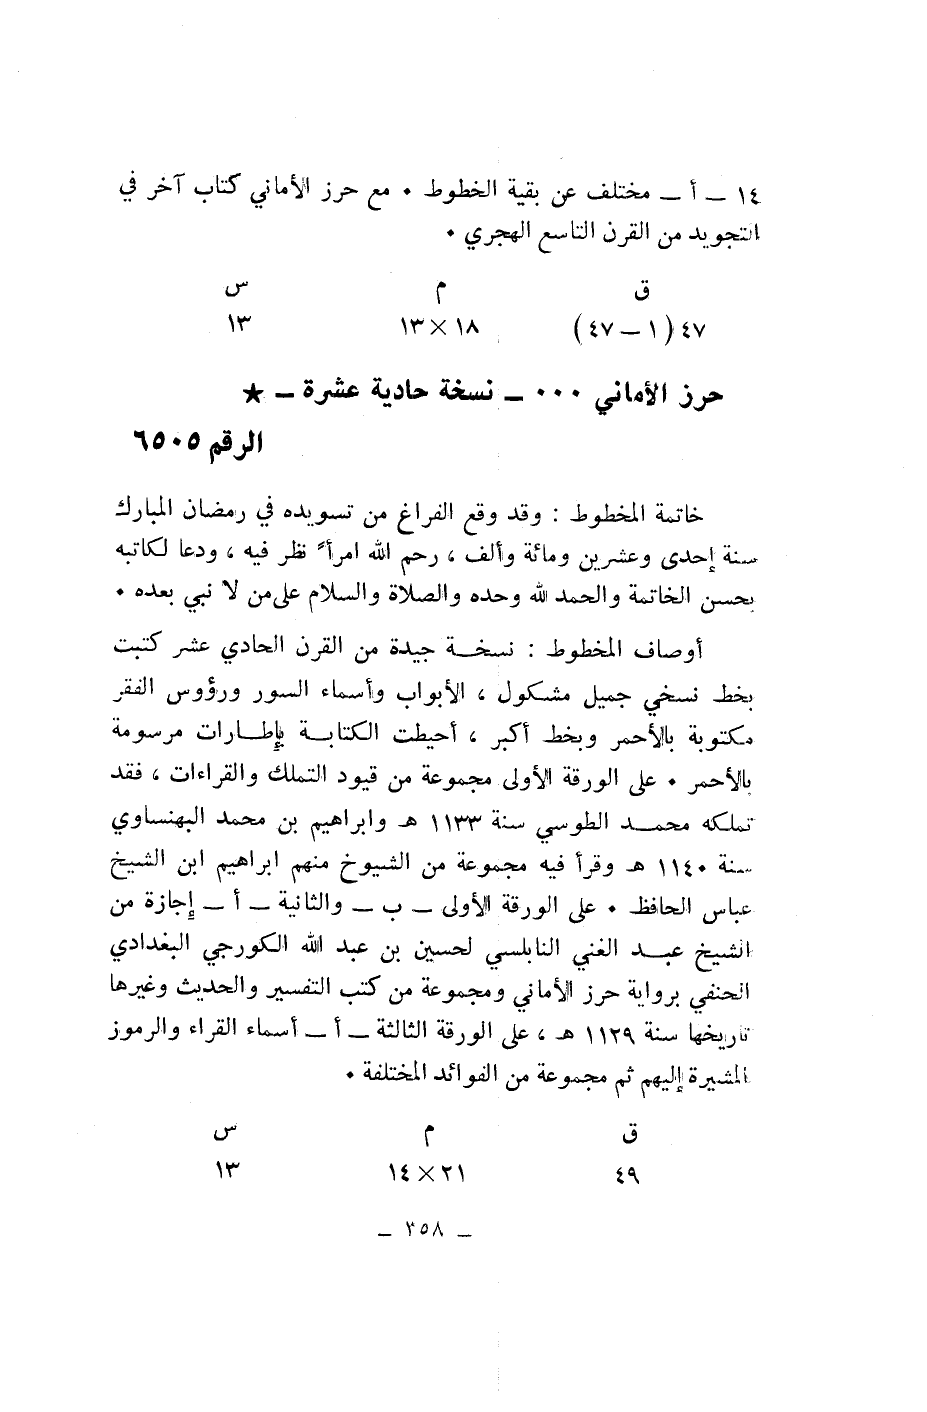 ١٤ ــ أ ــ مختلف عن بقية الخطوط ٠ مع حرز الأماني كتاب آخر في
التجويد من القرن التاسع الهجري ٠
ق م س
٤٧ (١ ــ ٤٧) ١٨ × ١٣ ١٣
حرز الأماني ٠٠٠ ــ نسخة حادية عشرة ــ ★
الرقم ٦٥٠٥
خاتمة المخطوط : وقد وقع الفراغ من تسويده في رمضان المبارك
سنة إحدى وعشرين ومائة وألف ، رحم الله امرأً نظر فيه ، ودعا لكاتبه
بحسن الخاتمة والحمد لله وحده والصلاة والسلام على من لا نبي بعده ٠
أوصاف المخطوط : نسخــة جيدة من القرن الحادي عشر كتبت
بخط نسخي جميل مشكول ، الأبواب وأسماء السور ورؤوس الفقر
مكتوبة بالأحمر وبخط أكبر ، أحيطت الكتابــة بإطــارات مرسومة
بالأحمر ٠ على الورقة الأولى مجموعة من قيود التملك والقراءات ، فقد
تملكه محمــد الطوسي سنة ١١٣٣ هـ وابراهيم بن محمد البهنساوي
سنة ١١٤٠ هـ وقرأ فيه مجموعة من الشيوخ منهم ابراهيم ابن الشيخ
عباس الحافظ ٠ على الورقة الأولى ــ ب ــ والثانية ــ أ ــ إجازة من
الشيخ عبــد الغني النابلسي لحسين بن عبد الله الكورجي البغدادي
الحنفي برواية حرز الأماني ومجموعة من كتب التفسير والحديث وغيرها
تاريخها سنة ١١٢٩ هـ ، على الورقة الثالثة ــ أ ــ أسماء القراء والرموز
المشيرة إليهم ثم مجموعة من الفوائد المختلفة ٠
ق م س
٤٩ ٢١ × ١٤ ١٣
ــ ٣٥٨ ــ